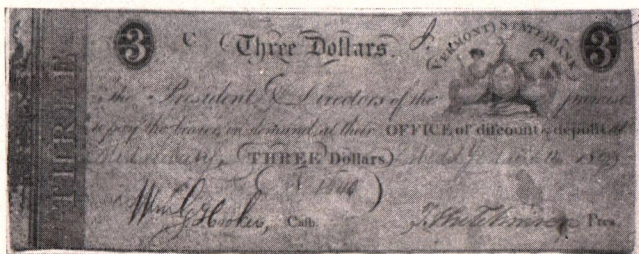 THREE
3 C Three Dollars. VERMONT STATE BANK 3
The President & Directors of the promise
to pay the bearer on demand, at their OFFICE of discount & deposit, at
THREE Dollars
Wm. G. Hooker, Cash. Pres.